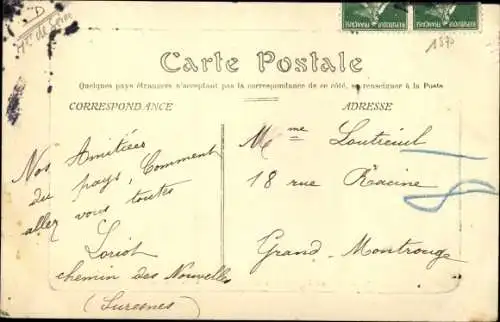 D
Hts de Seine
RÉPUBLIQUE FRANÇAISE
RÉPUBLIQUE FRANÇAISE
1870
Carte Postale
Quelques pays étrangers n'acceptant pas la correspondance de ce côté, se renseigner à la Poste
CORRESPONDANCE
ADRESSE
Nos Amitiées
du pays, Comment
allez vous toutes
Loriot
chemin des Nouvelles
(Suresnes)
Mme Loutreuil
18 rue Racine
Grand-Montrouge